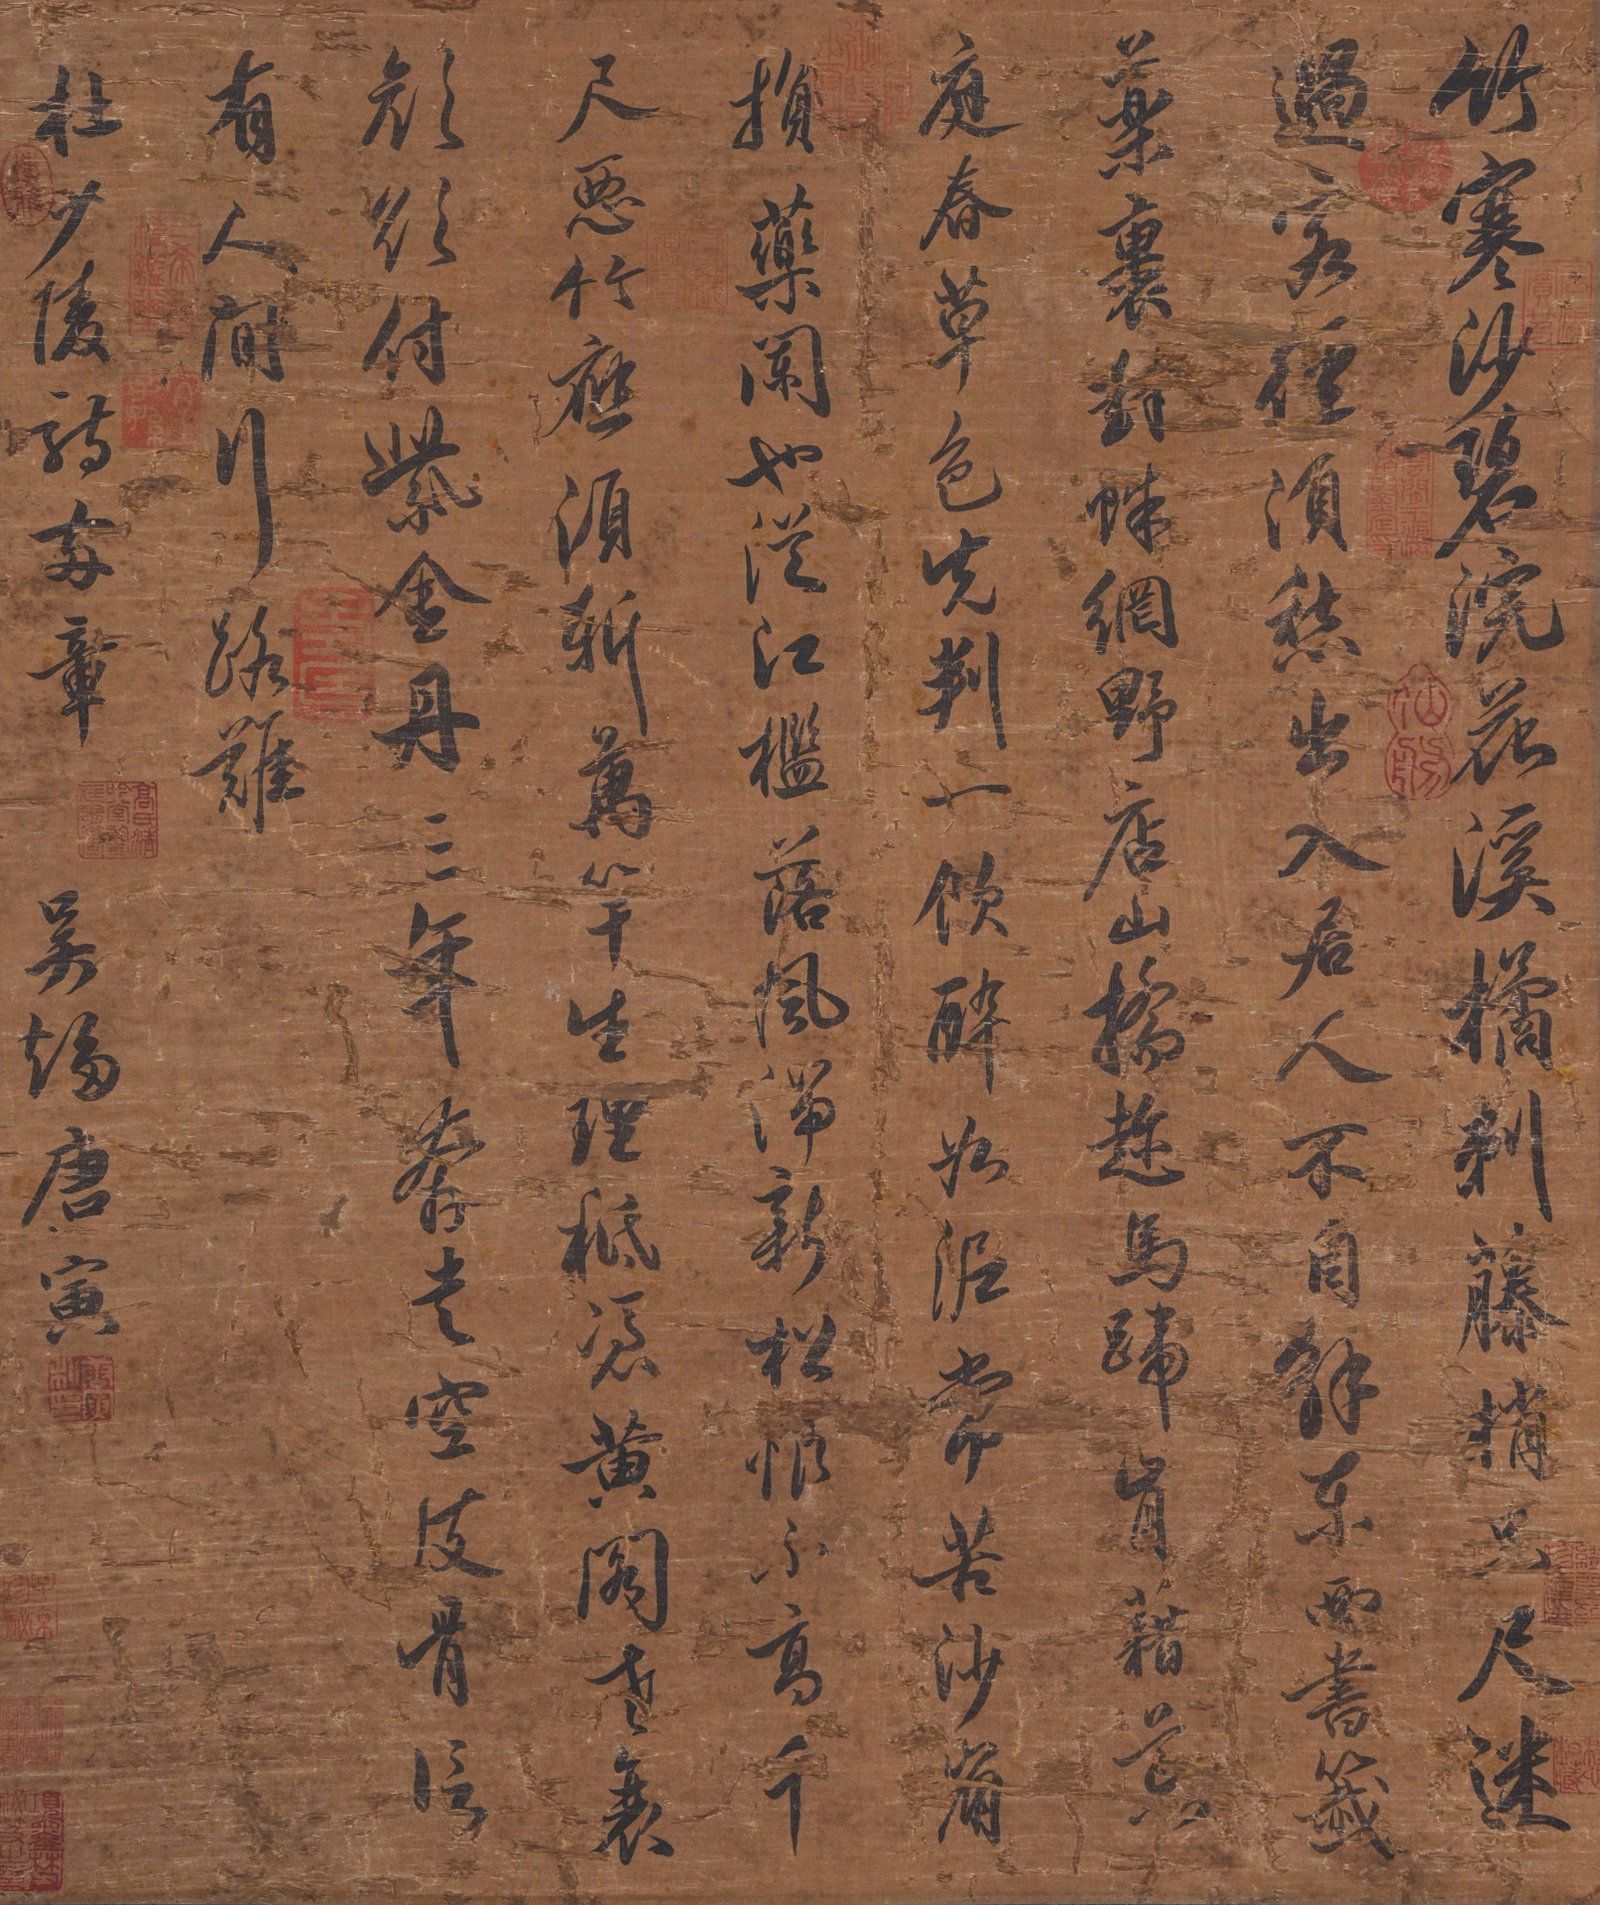 竹寒沙碧浣花溪橘刺藤梢只尺迷
過客徑須愁出入居人不自解東西書籤
藥裹封蛛網野店山橋趁馬蹄肯藉荒
庭春草色先判一飲醉如泥常苦沙崩
損藥闌也從江檻落風湍新松恨不高千
尺惡竹應須斬萬竿生理秪憑黃閣老衰
顏欲付紫金丹三年奔走空皮骨信
有人間行路難
杜少陵詩兩章 吳趨唐寅